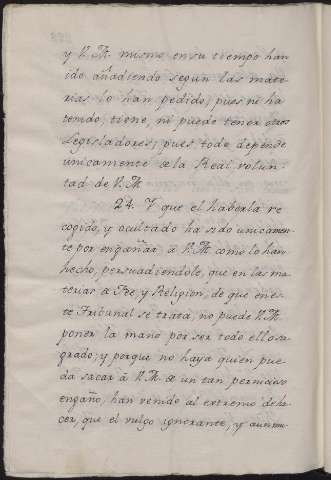 y V. M. mismo en su tiempo han
ido añadiendo segun las mate-
rias lo han pedido; pues ni ha
tenido, tiene, ni puede tener otros
Legisladores; pues todo depende
unicamente de la Real volun-
tad de V. M.
24. Y que el haberla re
cogido, y ocultado ha sido unicamen-
te por engañar à V. M. como lo han
hecho, persuadiendole, que en las ma-
terias de Fe, y Religion, de que en es-
te Tribunal se trata, no puede V. M.
poner la mano por ser todo ello sa-
grado; y porque no haya quien pue-
da sacar à V. M. de un tan pernicioso
engaño, han venido al extremo de ha-
cer, que el vulgo ignorante, y aun mu-